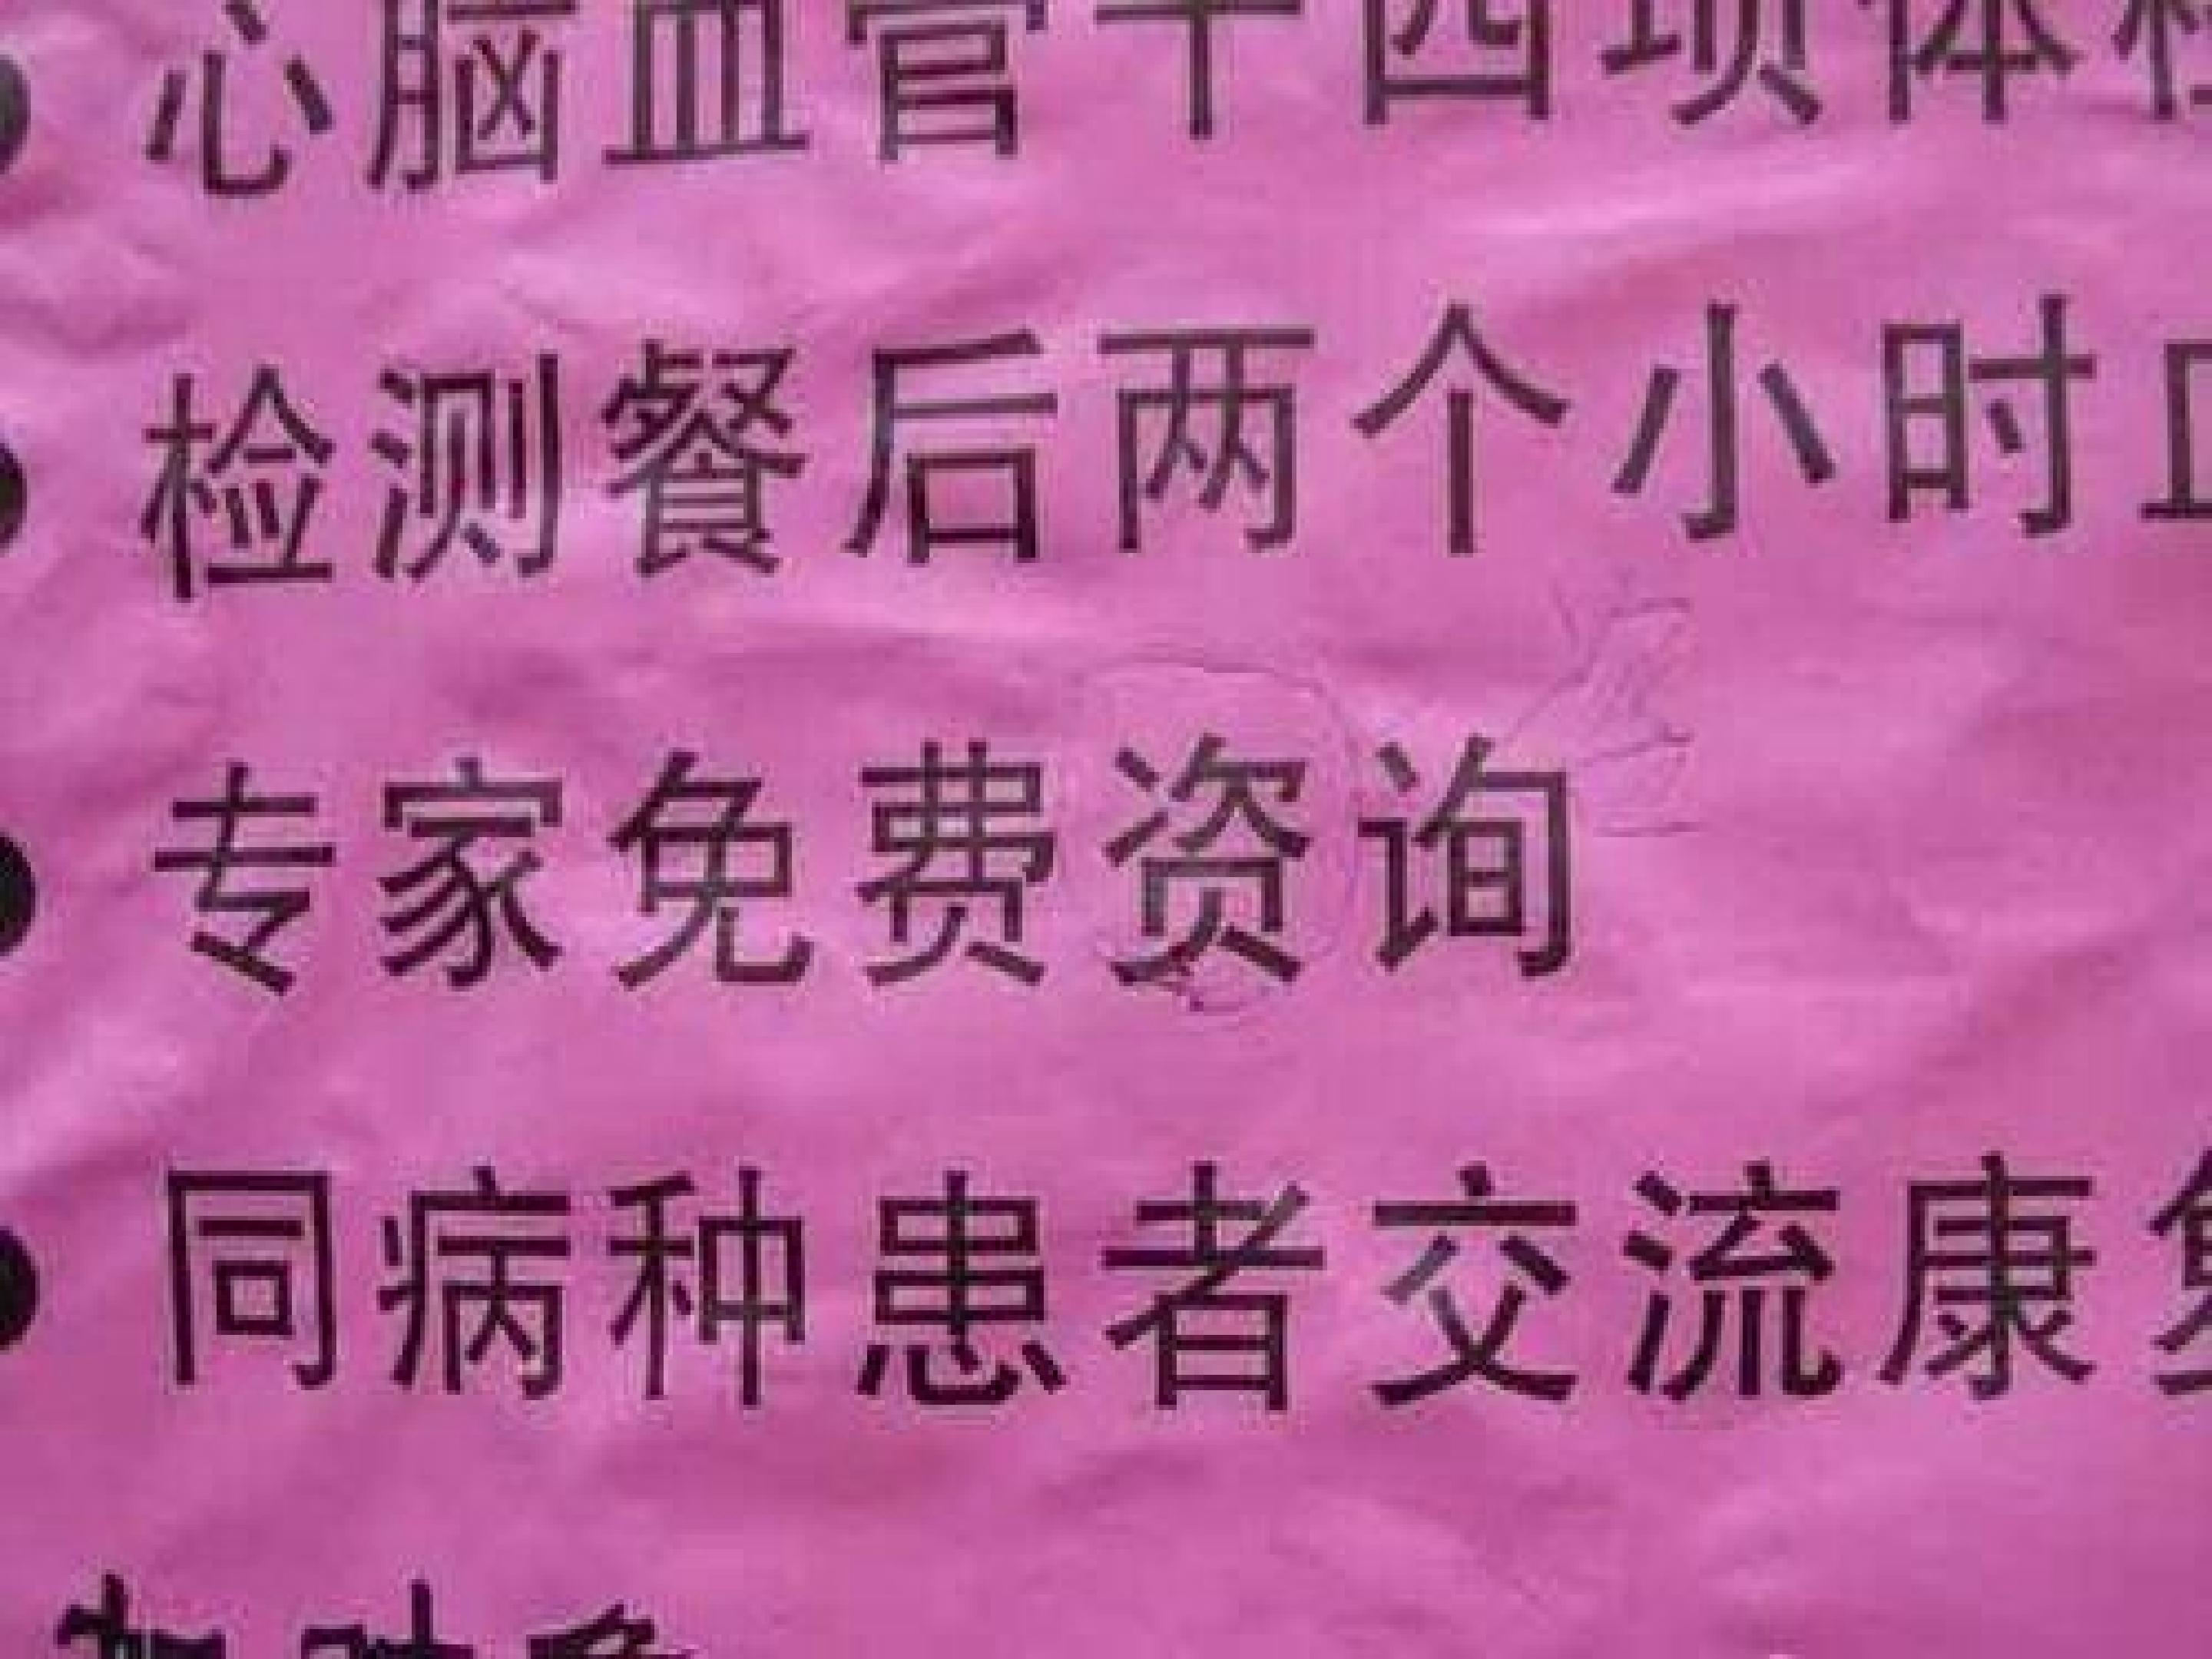 心脑血管十四项体检
检测餐后两个小时血
专家免费资询
同病种患者交流康复